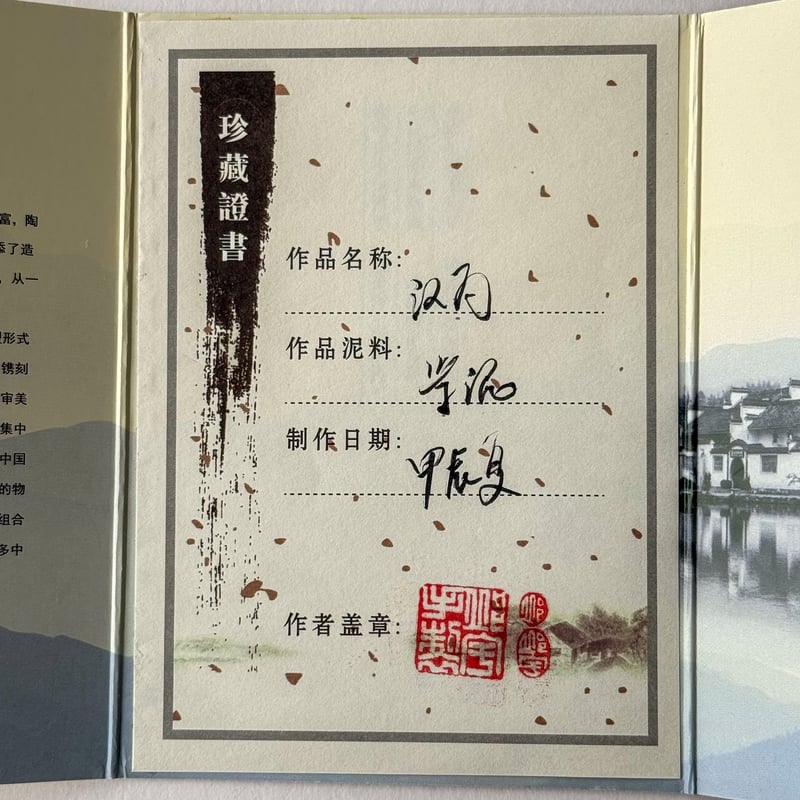 富，陶
添了造
，从一
形式
镌刻
审美
集中
中国
的物
组合
多中
珍藏證書
作品名称：
汉
作品泥料：
泥
制作日期：
甲辰夏
作者盖章：
宇
手製